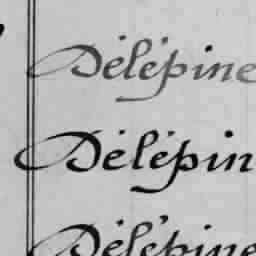 Délépine
Délépin
Délépine